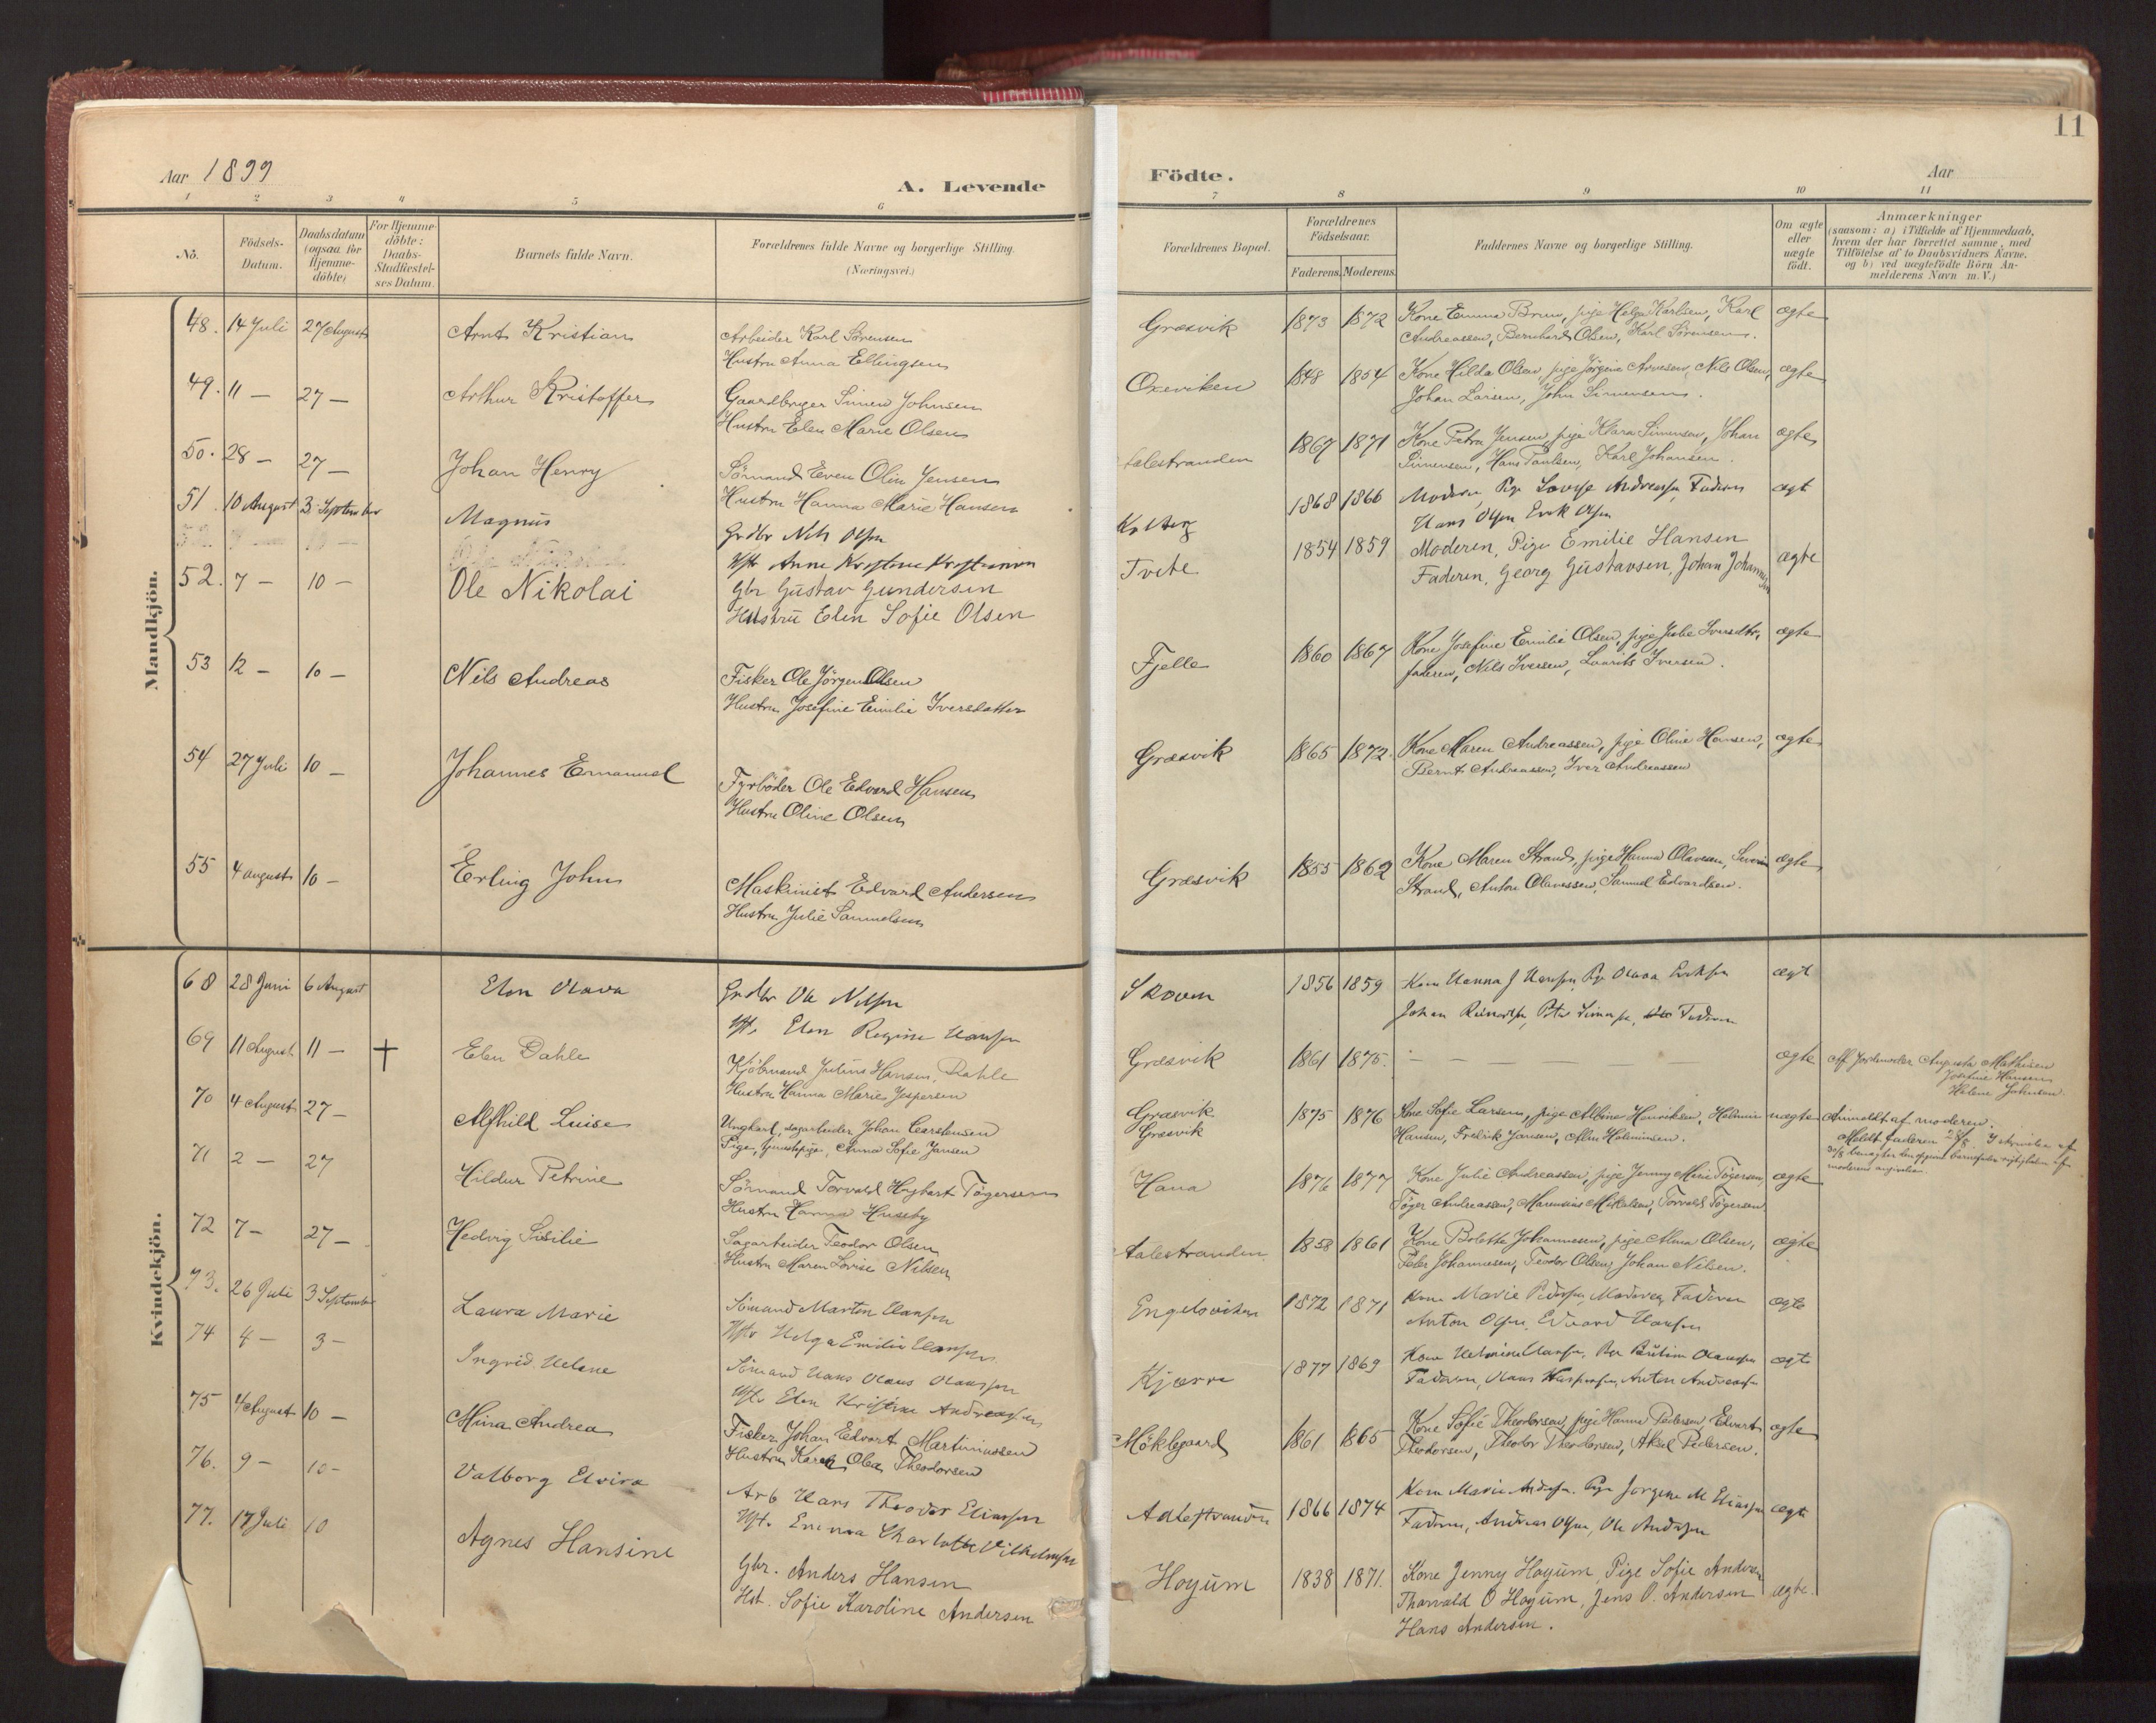 11
Aar 1899
A. Levende
Födte.
Aar
1 2 3 4 5 6 7 8 9 10 11
No.
Födsels-
Datum.
Daabsdatum
(ogsaa for
Hjemme-
döbte)
For Hjemme-
döbte:
Daabs-
Stadfæstel-
ses Datum.
Barnets fulde Navn.
Forældrenes fulde Navne og borgerlige Stilling.
(Næringsvei.)
Forældrenes Bopæl.
Forældrenes
Födselsaar.
Faderens. Moderens.
Faddernes Navne og borgerlige Stilling.
Om ægte
eller
uægte
födt.
Anmærkninger
(saasom: a) i Tilfælde af Hjemmedaab,
hvem der har forrettet samme, med
Tilföielse af to Daabsvidners Navne,
og b) ved uægtefödte Börn An-
melderens Navn m. V.)
Mandkjön.
48. 14 Juli 27 August Arnt Kristian Arbeider Karl Sørensen
Hustru Anna Ellingsen
Græsvik 1873 1872 Kone Emma Brun, pige Helga Karlsen, Karl ægte
Andreassen, Bernhard Olsen, Karl Sørensen.
49. 11 — 27 — Arthur Kristoffer Gaardbruger Simen Johnsen
Hustru Elen Marie Olsen
Oxeviken 1848 1854 Kone Hilda Olsen, pige Jørgine Arvesen, Nils Olsen, ægte
Johan Larsen, John Simensen.
50. 28 — 27 — Johan Henry Sömand Even Olin Jensen
Hustru Hanna Marie Hansen
Alestranden 1867 1871 Kone Petra Jensen, pige Klara Simensen, Johan ægte
Simensen, Hans Paulsen, Karl Johansen.
51. 10 August 3 September Magnus Grdbr Nils Olsen
Hst Anne Kristine Kristiansen
1868 1866 Moderen, Pige Lovise Andreassen, Faderen ægte
Hans Olsen, Erik Olsen
52. 7 — 10 — Ole Nikolai Gbr Gustav Gundersen
Hustru Elen Sofie Olsen
Tvete 1854 1859 Moderen, Pige Emilie Hansen ægte
Faderen, Georg Gustavsen, Johan Johannesen
53 12 — 10 — Nils Andreas Fisker Ole Jörgen Olsen
Hustru Josefine Emilie Iversdatter
Fjelle 1860 1867 Kone Josefine Emilie Olsen, pige Julie Iversdtr, ægte
faderen, Nils Iversen, Laurits Iversen.
54 27 Juli 10 — Johannes Emanuel Fyrböder Ole Edvard Hansen
Hustru Oline Olsen
Græsvik 1865 1872. Kone Maren Andreassen, pige Oline Hansen, ægte
Bernt Andreassen, Iver Andreassen
55 4 august 10 — Erling John Maskinist Edvard Andersen
Hustru Julie Samuelsen
Græsvik 1855 1862 Kone Maren Strand, pige Hanna Olavesen, Severin ægte
Strand, Anton Olavessen, Samuel Edvardsen.
Kvindekjön.
68 28 Juni 6 August Elen Olava Grdbr Ole Nilsen
Hst. Elen Regine Hansen
Skoven 1856 1859 Kone Hanna J Hansen, Pige Olava Eriksen ægte
Johan Reinertsen, Peter Simensen, Faderen
69 11 August 11 — † Elen Dahle Kjöbmand Julius Hansen Dahle
Hustru Hanna Marie Jespersen
Græsvik 1861 1875. — — — — ægte Af Jordemoder Augusta Mathisen
Josefine Hansen
Helene Johnsen
70 4 August 27 — Alfhild Luise Ungkarl, sagarbeider Johan Carstensen
Pige, Anna Sofie Jansen
Græsvik
Græsvik
1875 1876 Kone Sofie Larsen, pige Albine Henriksen, Helmin uægte Anmeldt af moderen.
Hansen, Fredrik Jansen, Alm Helminsen. Meldt faderen 28/8.
moderens angivelse.
71 2 — 27 Hildur Petrine Sömand Torvald Hagbart Tögersen
Hustru Hanna Huseby
Hana 1876 1877 Kone Julie Andreassen, pige Jenny Marie Tögersen, ægte
Töger Andreassen, Marensius Mikalsen, Torvald Tögersen
72 7 — 27 — Hedvig Sisilie Sagarbeider Teodor Olsen
Hustru Maren Lovise Nilsen
Alestranden 1858 1861 Kone Bolette Johannesen, pige Alma Olsen, ægte
Peder Johannesen, Teodor Olsen, Johan Nilsen.
73. 26 Juli 3 September Laura Marie Sömand Martin Hansen
Hst Helga Emilie Hansen
Engelsviken 1872 1871 Kone Marie Pedersen, Moderen, Faderen ægte
Anton Olsen, Edvard Hansen
74 4 — 3 — Ingrid Helene Sömand Hans Olaus Olaussen
Hst Elen Kristine Andreassen
Kjærre 1877 1869 ægte
Faderen, Anton Andreassen
75 4 August 10 — Mina Andrea Fisker Johan Edvart Martiniussen
Hustru Karen Olea Theodorsen
Möklegaard 1861 1865 Kone Sofie Theodorsen, pige Hanna Pedersen, Edvart ægte
Theodorsen, Theodor Theodorsen, Aksel Pedersen.
76. 9 — 10 — Valborg Elvira Arb Hans Theodor Eliassen
Hst. Emma Charlotte Vilhelmsen
Adlestranden 1866 1874 Kone Marie Andersen. Pige Jorgine M Eliassen ægte
Faderen, Andreas Olsen, Ole Andersen
77. 17 Juli 10 Agnes Hansine Gbr. Anders Hansen
Hst. Sofie Karoline Andersen
Hoyum 1838 1871. Kone Jenny Hoyum, Pige Sofie Andersen ægte
Thorvald O Hoyum, Jens O. Andersen
Hans Andersen.